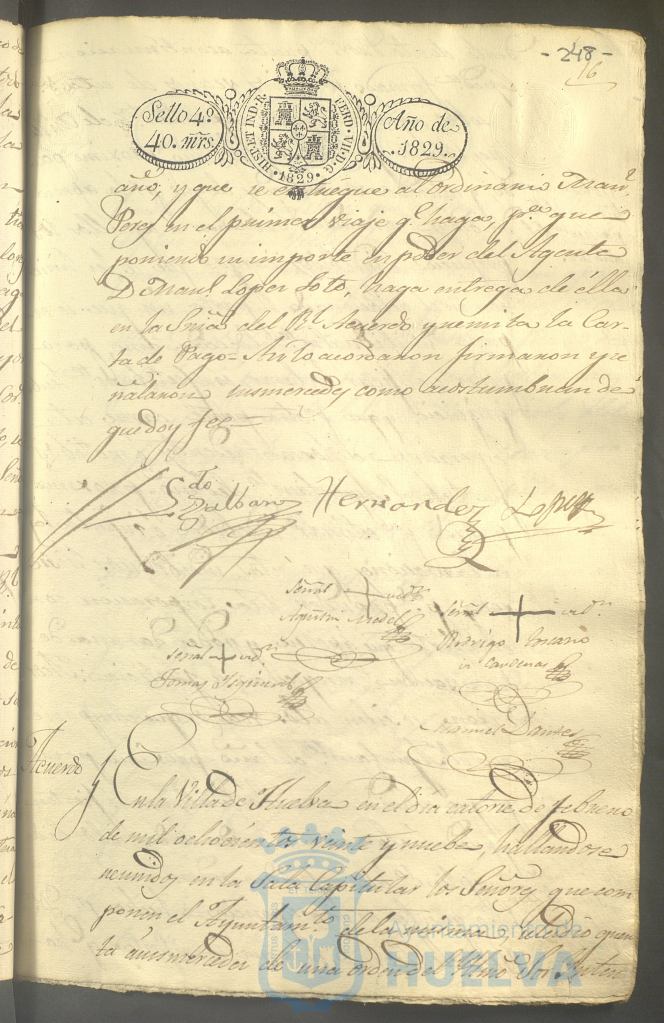 - 248 -
16
Sello 4º
40. mrs.
HISP. ET IND. R. FERD. VII. D. G. 1829
Año de
1829.
año, y que se entregue al ordinario Manl
Perez en el primer viaje qe haga, pa que
poniendo su importe en poder del Agente
D Manl Lopez Soto, haga entrega de élla
en la Sria del Rl Acuerdo y remita la Car-
ta de Pago= Asi lo acordaron firmaron y se
ñalaron susmercedes como acostumbran de
que doy fee=
Hernandez Lopez
Señal + del Sr
Agustin Medel
Señal + del Sr
Rodrigo
Cardenas
Señal + del Sr
Tomas Izquierdo
Manuel
Acuerdo
En la Villa de Huelva en el dia catorse de febrero
de mil ochocientos veinte y nuebe, hallandose
reunidos en la Sala Capitular los Señores que com
ponen el Ayuntamto de la misma, se dio quen
ta a susmercedes de una orden del Sor Inten
Ayuntamiento de
HUELVA